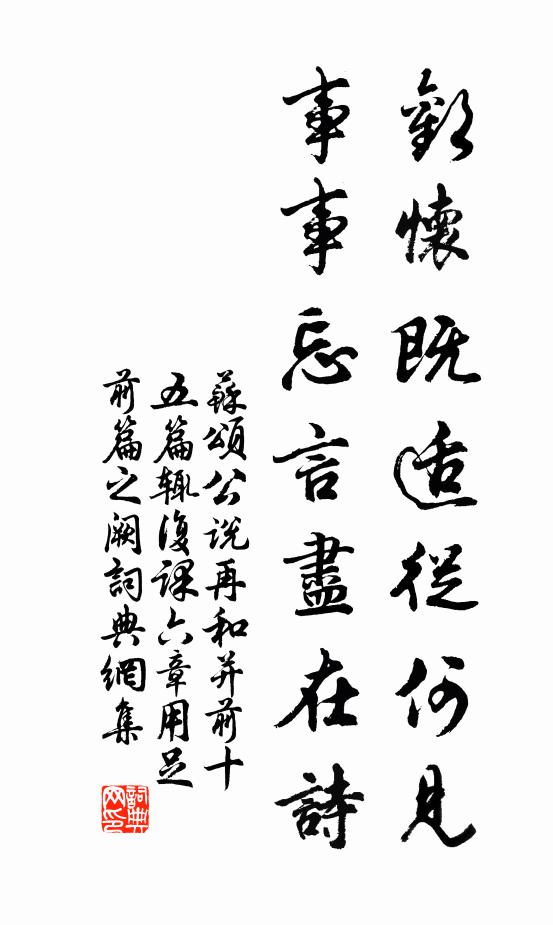 歡懷既适從何見
事事忘言盡在詩
蘇頌公說再和并前十
五篇輒復課六章用足
前篇之阙詞典網集
詞典网印